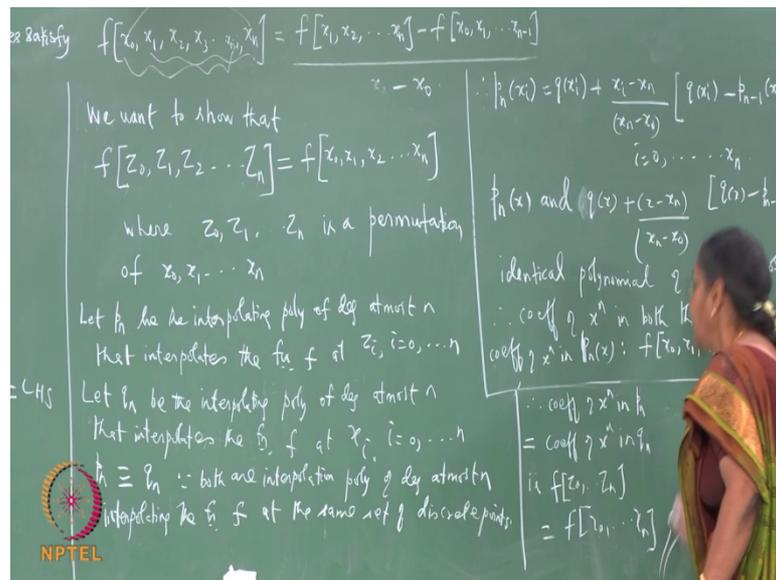 satisfy f[x₀, x₁, x₂, x₃ ... xₙ₋₁, xₙ] = f[x₁, x₂, ... xₙ] - f[x₀, x₁, ... xₙ₋₁]
- x₀
We want to show that
f[z₀, z₁, z₂ ... zₙ] = f[x₀, x₁, x₂ ... xₙ]
where z₀, z₁ .. zₙ is a permutation
of x₀, x₁ ... xₙ
Let pₙ be the interpolating poly of deg atmost n
that interpolates the fn. f at zᵢ, i=0, ... n
= LHS
Let qₙ be the interpolating poly of deg atmost n
that interpolates the fn. f at xᵢ, i=0, ... n
pₙ ≡ qₙ ∵ both are interpolation poly of deg atmost n
interpolating the fn f at the same set of discrete points.
∴ pₙ(xᵢ) = q(xᵢ) + (xᵢ - xₙ)/(xₙ - x₀) [q(xᵢ) - pₙ₋₁(x
i=0, ..... xₙ
pₙ(x) and q(x) + (x - xₙ)/(xₙ - x₀) [q(x) - pₙ-
identical polynomial of
∴ coeff of xⁿ in both th
coeff of xⁿ in pₙ(x) : f[x₀, x₁,
∴ coeff of xⁿ in pₙ
= coeff of xⁿ in qₙ
is f[z₀, .. zₙ]
= f[x₀, ... xₙ]
NPTEL